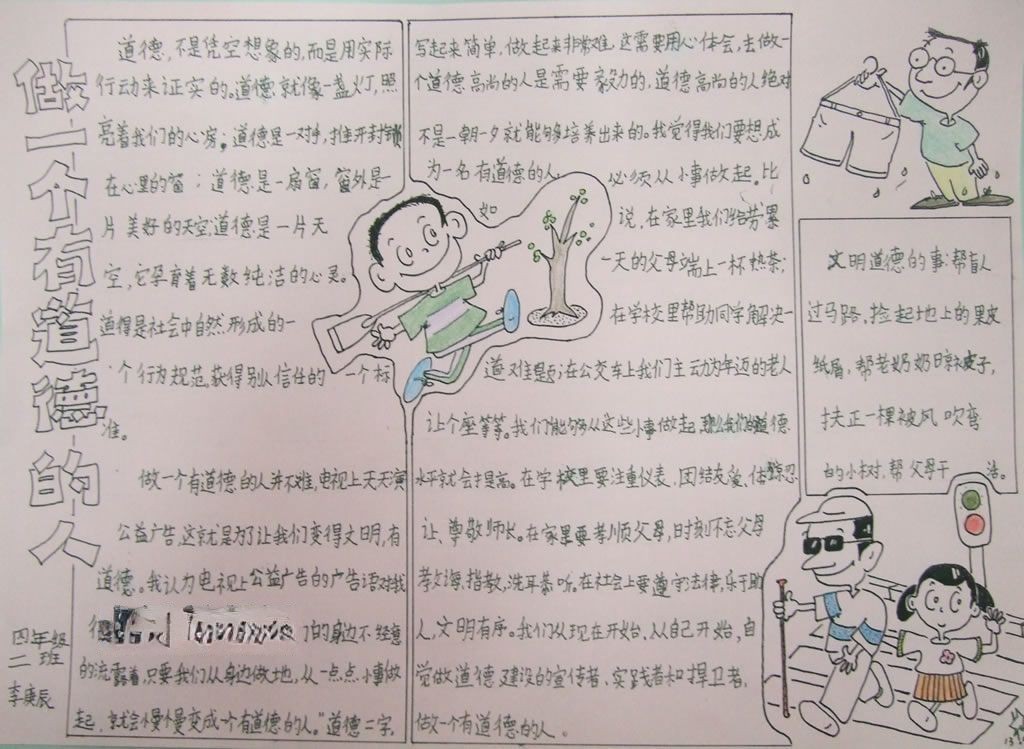 做一个有道德的人
四年级
二班
李庚辰
道德,不是凭空想象的,而是用实际
行动来证实的。道德就像一盏灯,照
亮着我们的心房;道德是一对手,推开封锁
在心里的窗;道德是一扇窗,窗外是一
片美好的天空,道德是一片天
空,它孕育着无数纯洁的心灵。
道得是社会中自然形成的一
个行为规范,获得别人信任的一个标
准。
做一个有道德的人并不难,电视上天天演
公益广告,这就是为了让我们变得文明,有
道德。我认为电视上公益广告的广告语对我
的身边不经意
的流露着,只要我们从身边做地,从一点点小事做
起,就会慢慢变成一个有道德的人。"道德二字,
写起来简单,做起来非常难,这需要用心体会,去做一
个道德高尚的人是需要毅力的,道德高尚的人绝对
不是一朝一夕就能够培养出来的。我觉得我们要想成
为一名有道德的人,必须从小事做起。比
如说,在家里我们给劳累
一天的父母端上一杯热茶;
在学校里帮助同学解决一
道难题;在公交车上我们主动为年迈的老人
让个座等等。我们能够从这些小事做起,那么我们的道德
水平就会提高。在学校里要注重仪表、团结友爱、体谅忍
让、尊敬师长。在家里要孝顺父母,时刻不忘父母
教诲、指教,洗耳恭听。在社会上要遵守法律,乐于助
人,文明有序。我们从现在开始,从自己开始,自
觉做道德建设的宣传者、实践者和捍卫者,
做一个有道德的人。
文明道德的事:帮盲人
过马路,捡起地上的果皮
纸屑,帮老奶奶晾被子,
扶正一棵被风吹弯
的小树,帮父母干活。